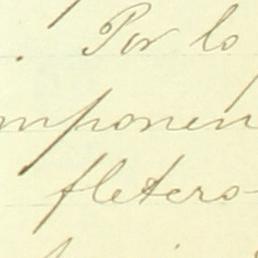 . Por lo
mponen
fletero-